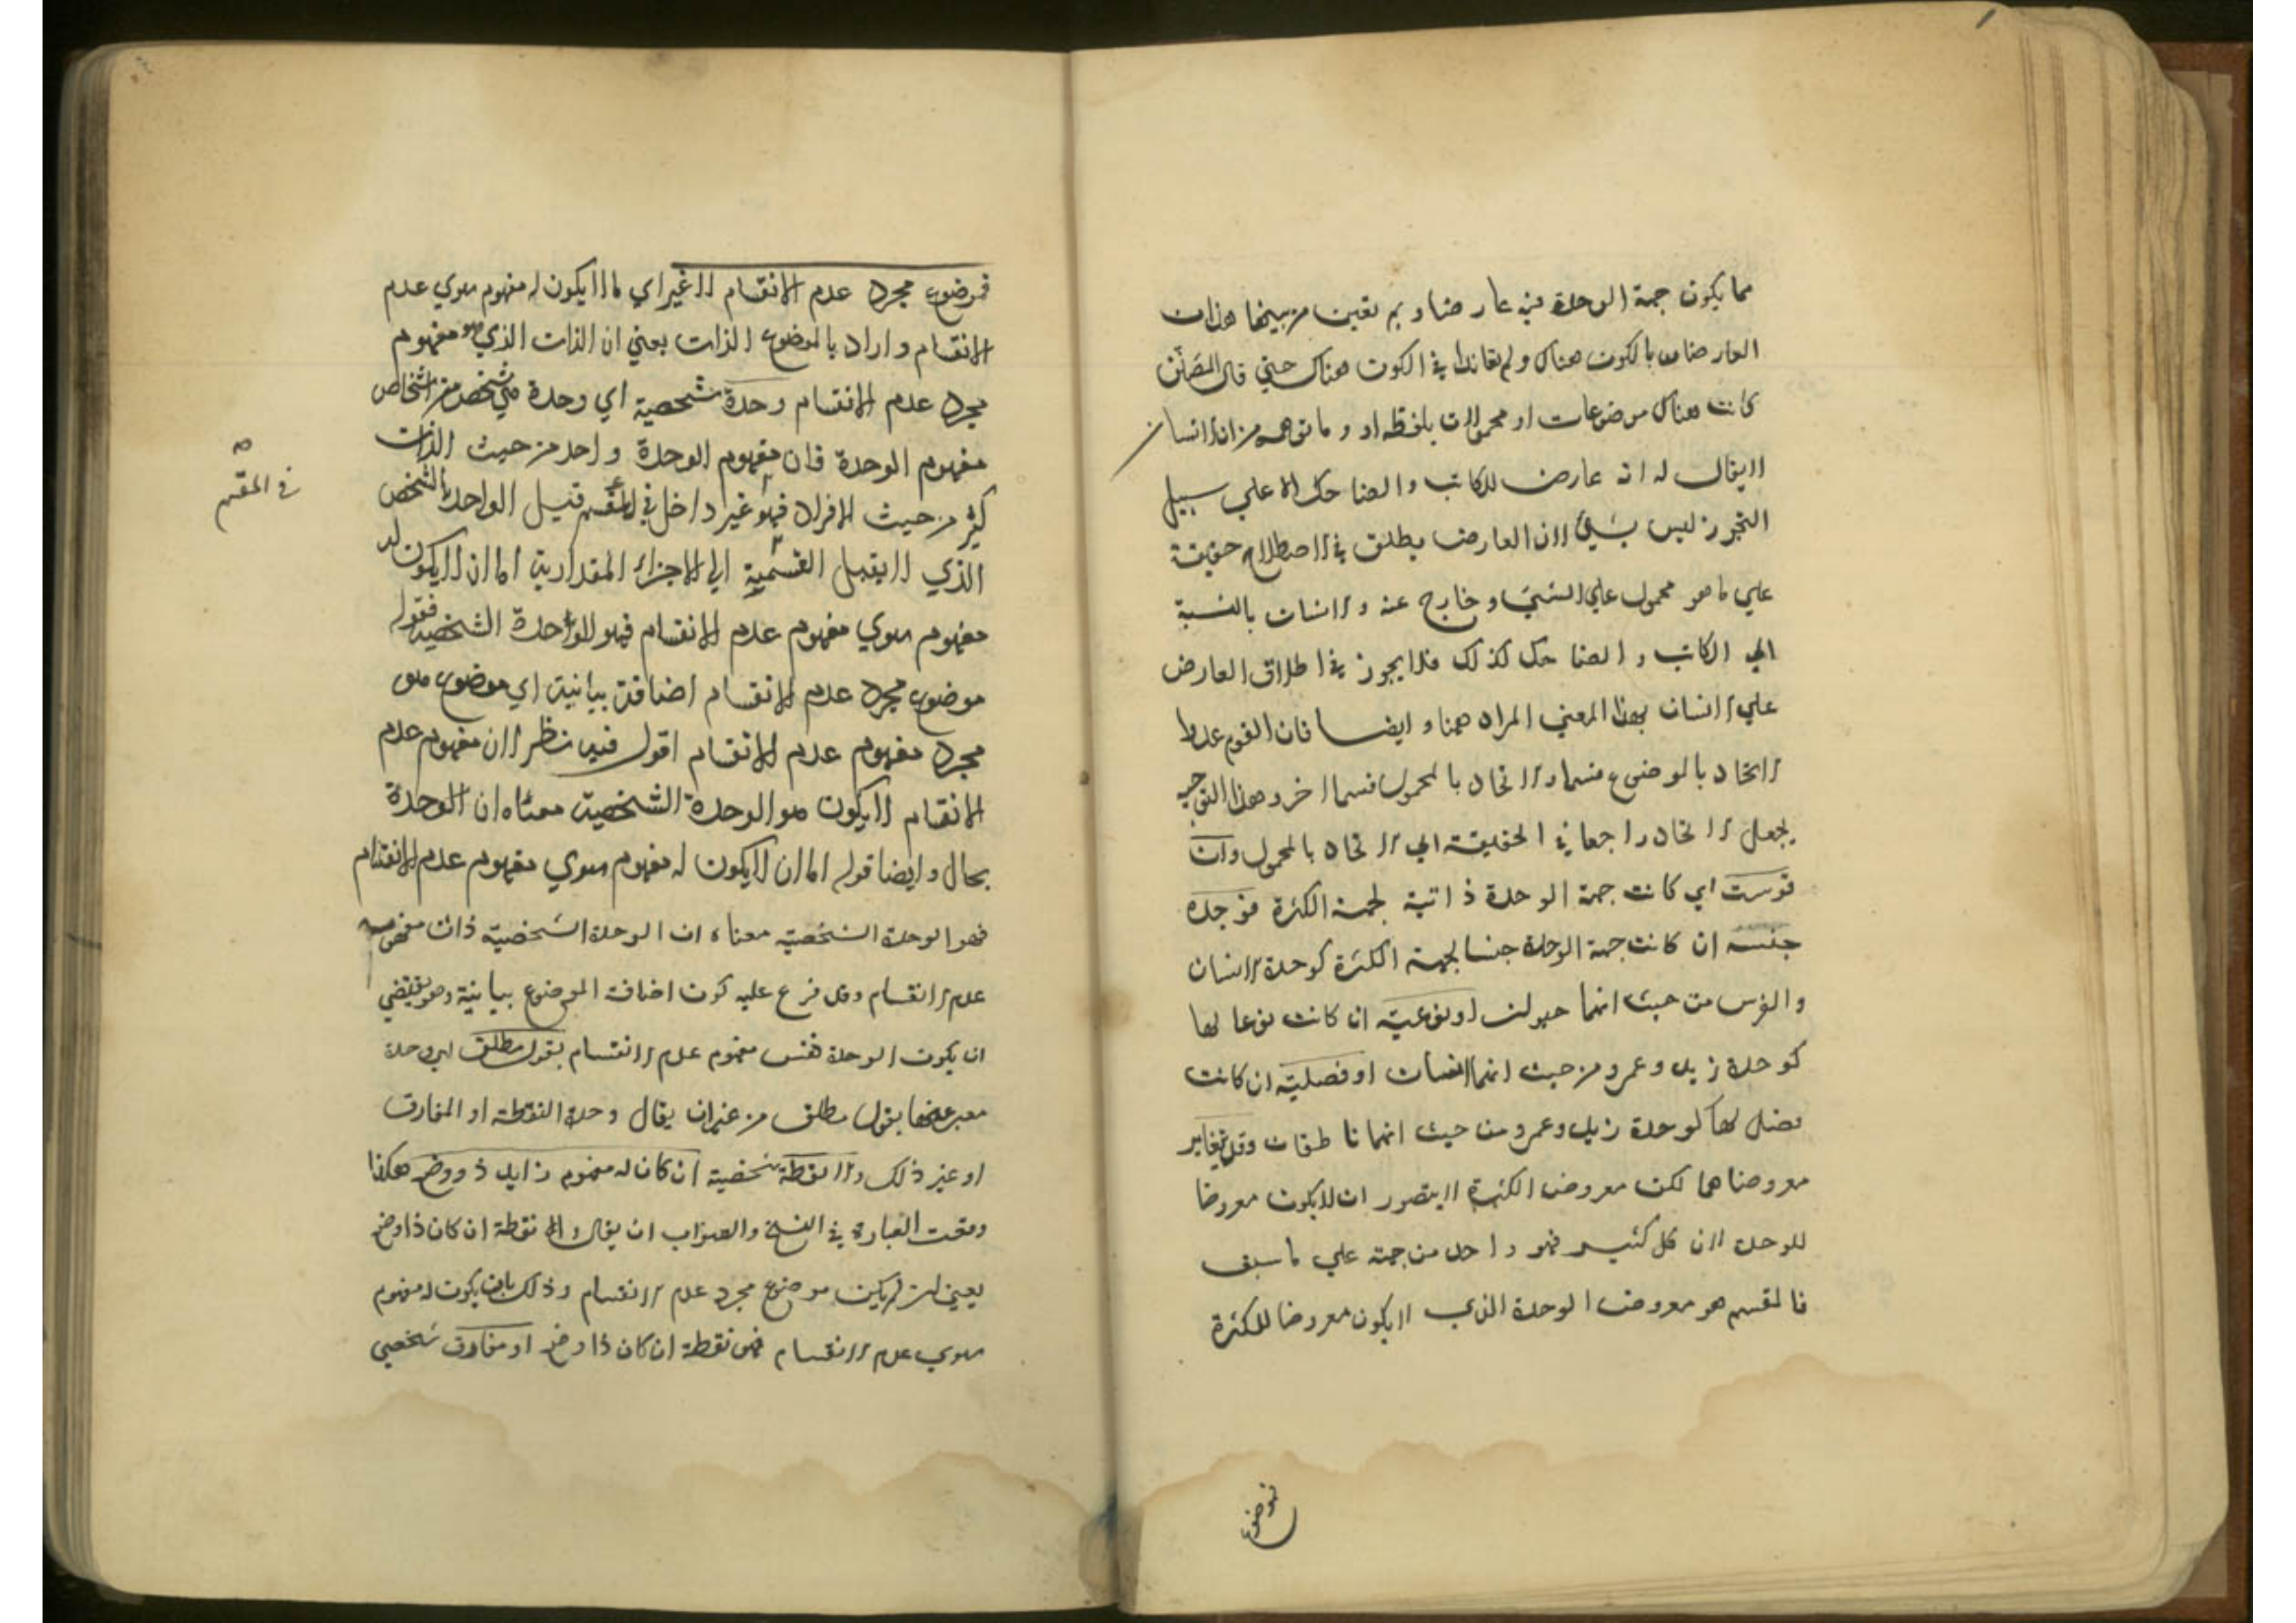 مما يكون جهة الوحدة فيه عارضا و بم تعين من بينها هذان
العارضان بالكون هناك ولم يقابلا في الكون هناك حتى قال المصنف
كانت هناك موضوعات او محمولات بلفظه او وما توهم من ان الانسان
لايقال له انه عارض للكاتب والضاحك الا علي سبيل
التجوز ليس بشيئ لان العارض يطلق في الاصطلاح حقيقة
علي ما هو محمول علي الشيئ و خارج عنه و الانسان بالنسبة
الي الكاتب و الضاحك كذلك فلا يجوز في اطلاق العارض
علي الانسان بهذا المعني المراد ههنا و ايضا فان القوم عدوا
الاتحاد بالموضوع قسما و الاتحاد بالمحمول قسما اخر و هذا التوجيه
يجعل الاتحاد راجعا في الحقيقة الي الاتحاد بالمحمول وان
قومت اي كانت جهة الوحدة ذاتية لجهة الكثرة فوحدة
جنسه ان كانت جهة الوحدة جنسا لجهة الكثرة كوحدة الانسان
والفرس من حيث انهما حيوان او نوعية ان كانت نوعا لها
كوحدة زيد وعمرو من حيث انهما انسان او فصلية ان كانت
فصل لها كوحدة زيد وعمرو من حيث انهما ناطقان وقد يتغاير
معروضاهما لكن معروض الكثرة لايتصور ان لايكون معروضا
للوحدة لان كل كثير فهو واحد من جهة علي ما سبق
فالمقسم هو معروض الوحدة الذي لايكون معروضا للكثرة
فموضوع
فموضوع مجرد عدم الانقسام لا غير اي ما لا يكون له مفهوم سوي عدم
الانقسام و اراد بالموضوع الذات يعني ان الذات الذي هو مفهوم
مجرد عدم الانقسام وحدة شخصية اي وحدة هي شخص من اشخاص
مفهوم الوحدة فان مفهوم الوحدة واحد من حيث الذات
كثير من حيث الافراد فهو غير داخل في المقسم قيل الواحد بالشخص
الذي لا يقبل القسمية الي الاجزاء المقدارية اما ان لايكون له
مفهوم سوي مفهوم عدم الانقسام فهو الواحدة الشخصية فقوله
موضوع مجرد عدم الانقسام اضافة بيانية اي موضوع هو
مجرد مفهوم عدم الانقسام اقول فيه نظر لان مفهوم عدم
الانقسام لايكون هو الوحدة الشخصية معناه ان الوحدة
بحال و ايضا قوله اما ان لايكون له مفهوم سوي مفهوم عدم الانقسام
فهو الوحدة الشخصية معناه ان الوحدة الشخصية ذات مفهومه
عدم الانقسام وقد فرع عليه كون اضافة الموضوع بيانية وهو يقتضي
ان يكون الوحدة نفس مفهوم عدم الانقسام بقول مطلق اي وحدة
معبر عنها بقول مطلق من غير ان يقال وحدة النقطة او المفارق
او غير ذلك والا نقطة شخصية ان كان له مفهوم زايد ذو وضع هكذا
وقعت العبارة في النسخ والصواب ان يقال والا نقطة ان كان ذا وضع
يعني ان لم يكن موضوع مجرد عدم الانقسام وذلك بان يكون له مفهوم
سوي عدم الانقسام فهي نقطة ان كان ذا وضع او مفارق شخصي
في المقسم